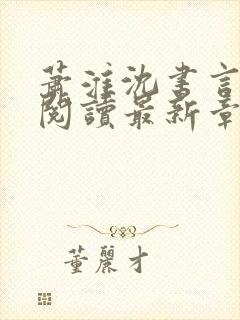 蕭淮沈書言
閱讀最新章
董麗才